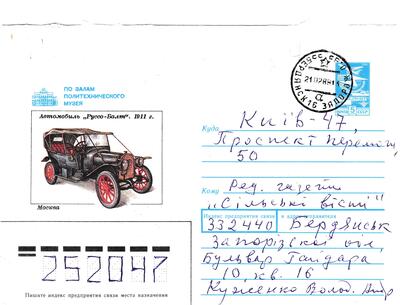 ПО ЗАЛАМ
ПОЛИТЕХНИЧЕСКОГО
МУЗЕЯ
Автомобиль „Руссо-Балт“. 1911 г.
Москва
Куда Київ-47,
Проспект Перемоги,
50
Кому Ред. газети
"Сільські вісті"
Индекс предприятия связи и адрес отправителя
332440 Бердянськ
Запорізької обл,
Бульвар
10, кв. 16
Куженко Волод.
252047
Пишите индекс предприятия связи места назначения